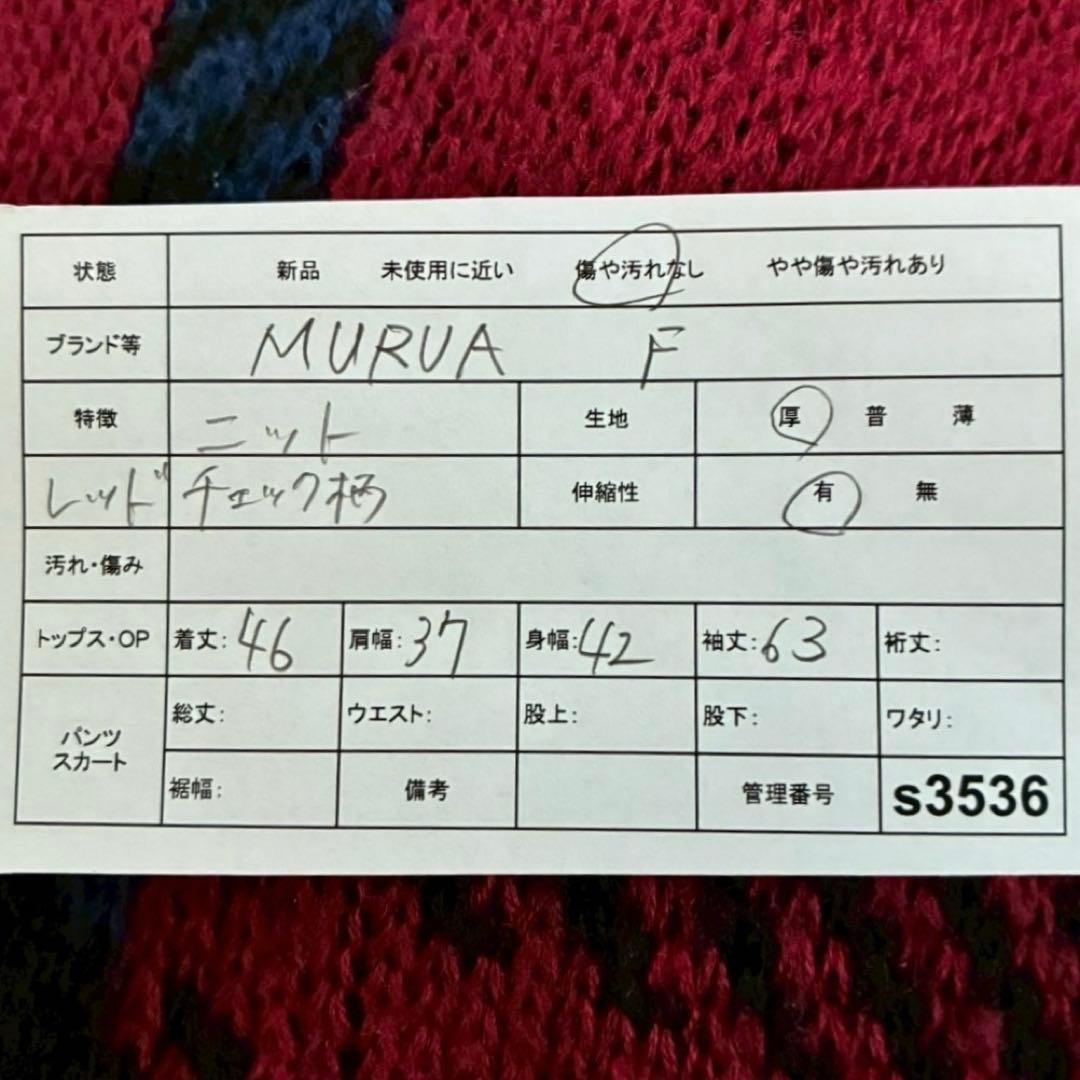 状態 新品 未使用に近い 傷や汚れなし やや傷や汚れあり
ブランド等 MURUA F
特徴 ニット 生地 厚 普 薄
レッド チェック柄 伸縮性 有 無
汚れ・傷み
トップス・OP 着丈: 46 肩幅: 37 身幅: 42 袖丈: 63 裄丈:
パンツ スカート 総丈: ウエスト: 股上: 股下: ワタリ:
裾幅: 備考 管理番号 s3536